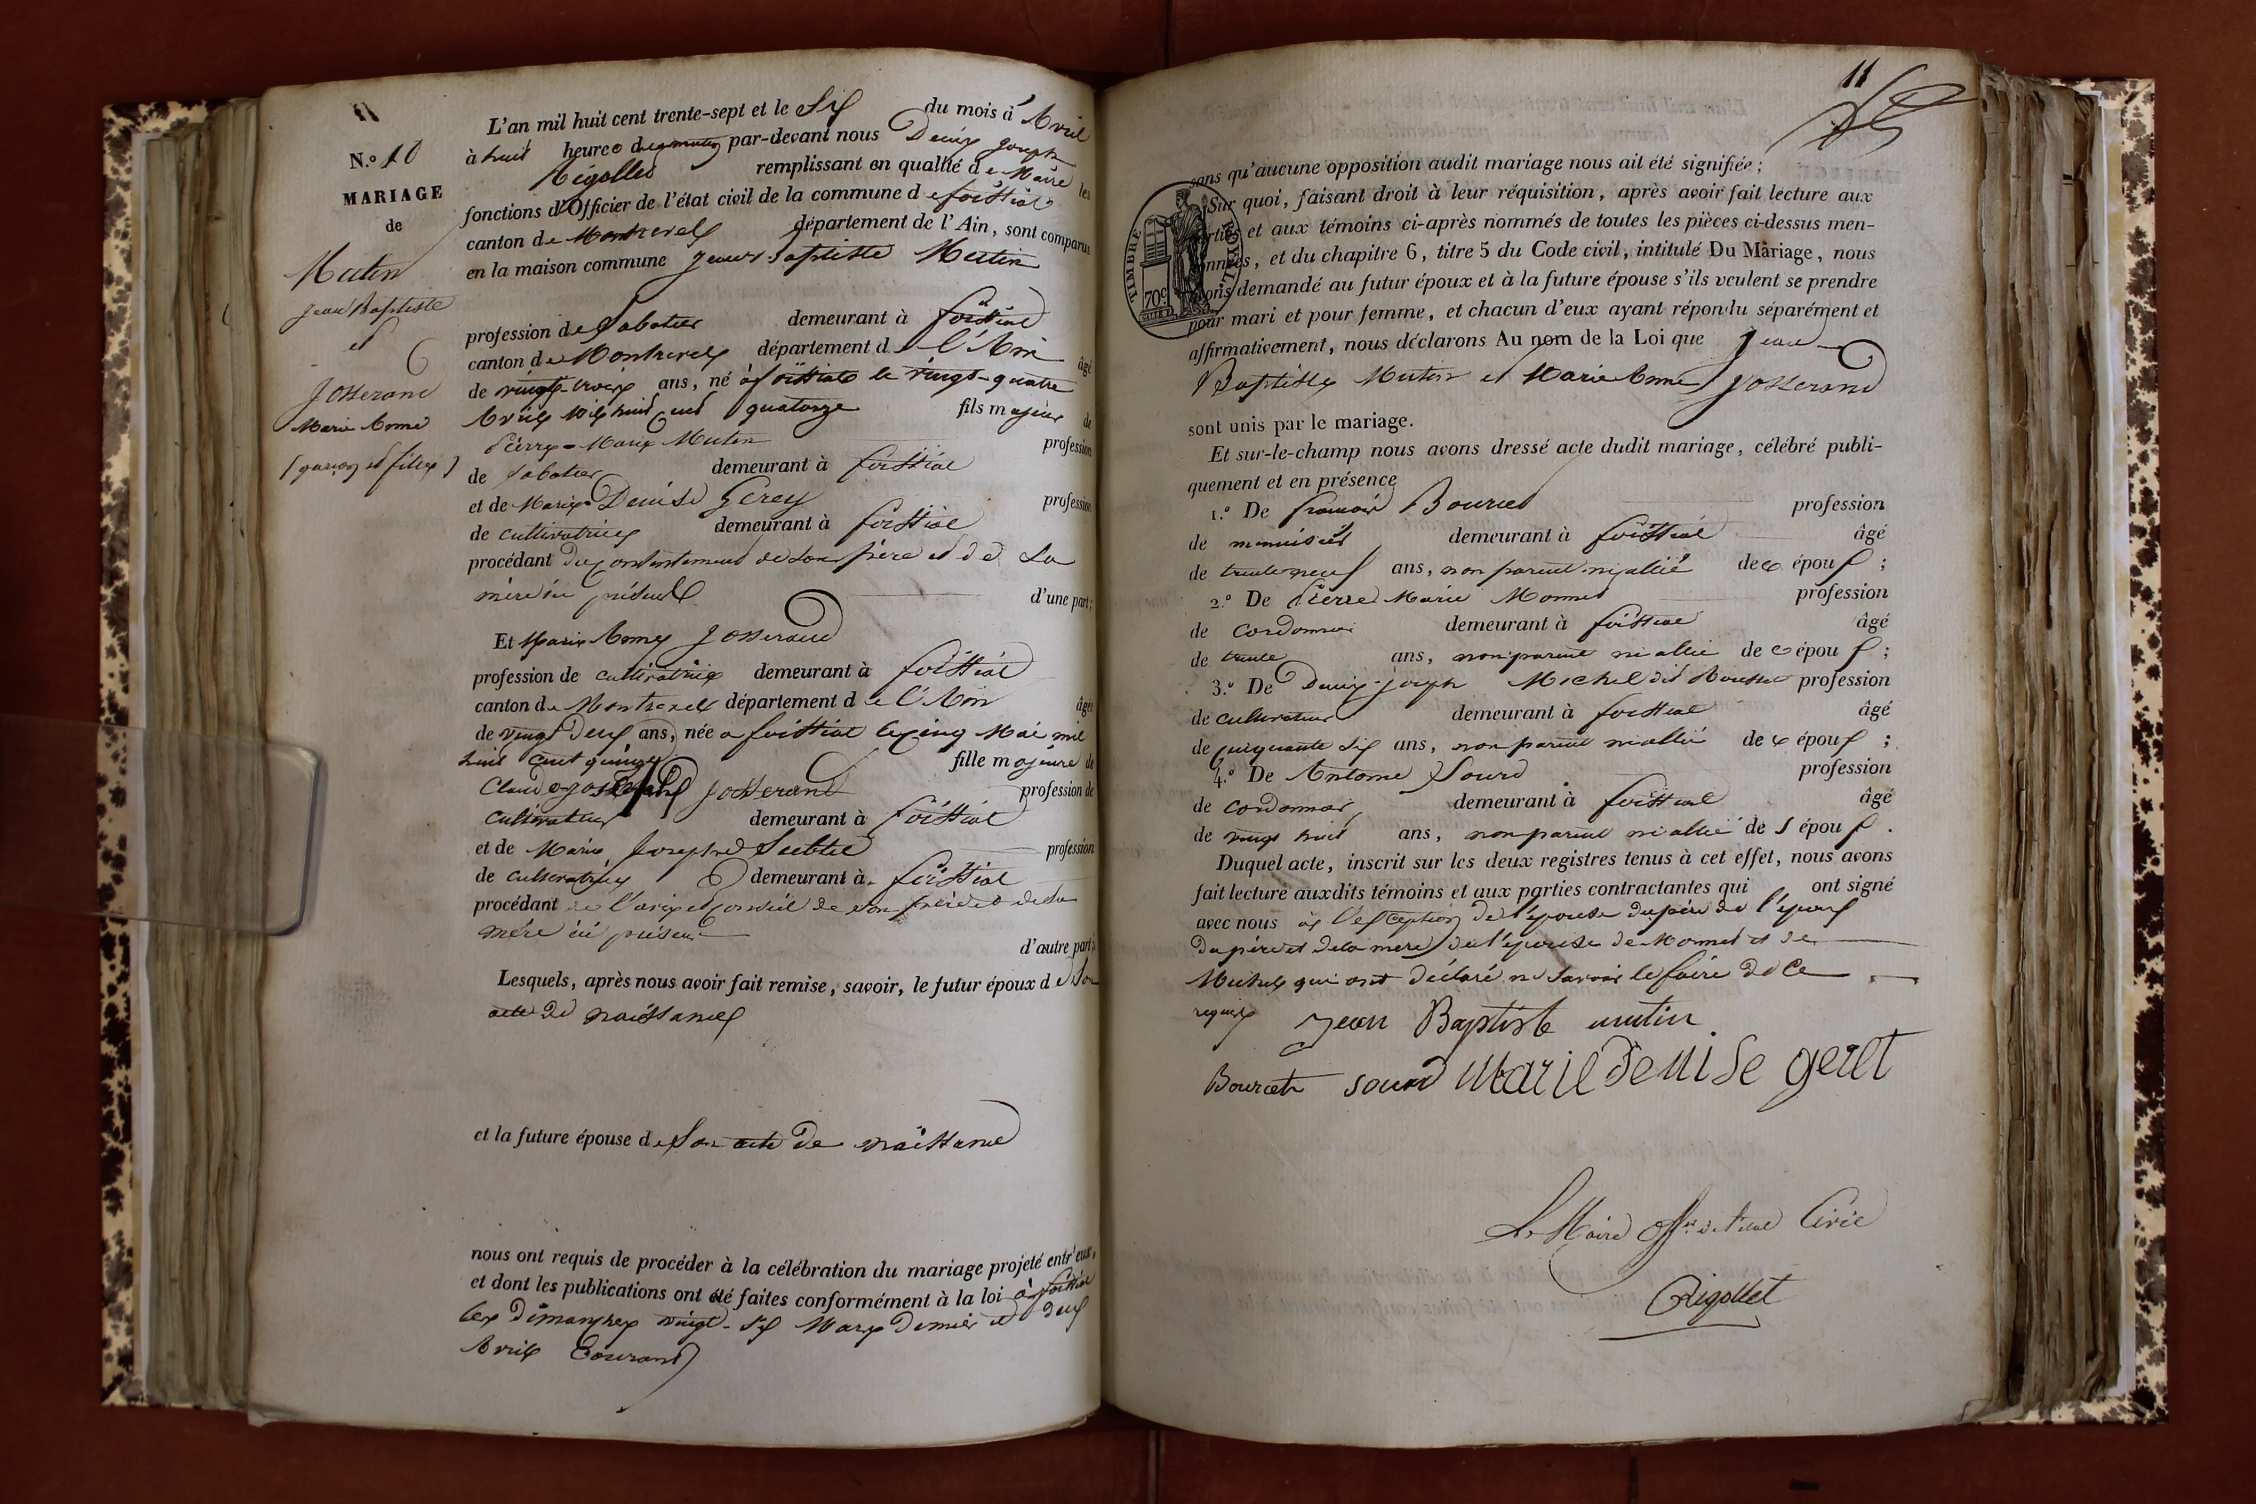 N.º 10
MARIAGE
de
Mutin
Jean Baptiste
et
Josserand
Marie Anne
(garçon et fille)
L'an mil huit cent trente-sept et le Six du mois d'Avril
à huit heures du matin par-devant nous Denis Joseph
Rigollet remplissant en qualité de Maire les
fonctions d'Officier de l'état civil de la commune de foissiat
canton de Montrevel département de l'Ain, sont comparus
en la maison commune Jean Baptiste Mutin
profession de Sabotier demeurant à foissiat
canton de Montrevel département de l'Ain âgé
de vingt-trois ans, né à foissiat le vingt-quatre
Avril mil huit cent quatorze fils majeur de
Pierre-Marie Mutin profession
de Sabotier demeurant à foissiat
et de Marie Denise Gerey profession
de cultivatrice demeurant à foissiat
procédant du consentement de son père et de sa
mère ici présents d'une part;
Et Marie Anne Josserand
profession de cultivatrice demeurant à foissiat
canton de Montrevel département de l'Ain âgée
de vingt deux ans, née a foissiat le cinq Mai mil
huit cent quinze fille majeure de
Claude Josserand profession de
cultivateur demeurant à foissiat
et de Marie Josephe Subtil profession
de cultivatrice demeurant à foissiat
procédant de l'avis et conseil de son père et de sa
mère ici présents d'autre part;
Lesquels, après nous avoir fait remise, savoir, le futur époux de Son
acte de naissance
et la future épouse de Son acte de naissance
nous ont requis de procéder à la célébration du mariage projeté entr'eux,
et dont les publications ont été faites conformément à la loi à foissiat
les dimanches vingt-six Mars dernier et deux
Avril Courant
11
sans qu'aucune opposition audit mariage nous ait été signifiée;
TIMBRE ROYAL
70c
Sur quoi, faisant droit à leur réquisition, après avoir fait lecture aux
parties et aux témoins ci-après nommés de toutes les pièces ci-dessus men-
tionnées, et du chapitre 6, titre 5 du Code civil, intitulé Du Mariage, nous
avons demandé au futur époux et à la future épouse s'ils veulent se prendre
pour mari et pour femme, et chacun d'eux ayant répondu séparément et
affirmativement, nous déclarons Au nom de la Loi que Jean
Baptiste Mutin et Marie Anne Josserand
sont unis par le mariage.
Et sur-le-champ nous avons dressé acte dudit mariage, célébré publi-
quement et en présence
1.º De francois Bourcet profession
de menuisier demeurant à foissiat âgé
de trente neuf ans, non parent ni allié des époux;
2.º De Pierre Marie Monnet profession
de Cordonnier demeurant à foissiat âgé
de trente ans, non parent ni allié des époux;
3.º De Denis-joseph Michel dit Rousset profession
de cultivateur demeurant à foissiat âgé
de cinquante six ans, non parent ni allié des époux;
4.º De Antoine Sourd profession
de cordonnier demeurant à foissiat âgé
de vingt huit ans, non parent ni allié des époux.
Duquel acte, inscrit sur les deux registres tenus à cet effet, nous avons
fait lecture auxdits témoins et aux parties contractantes qui ont signé
avec nous à l'exception de l'épouse du père de l'époux
du père et de la mère de l'épouse de Monnet et de
Michel qui ont déclaré ne savoir le faire de ce
requis Jean Baptiste mutin
Bourcet sourd Marie denise geret
Le Maire Off.er de l'état Civil
Rigollet